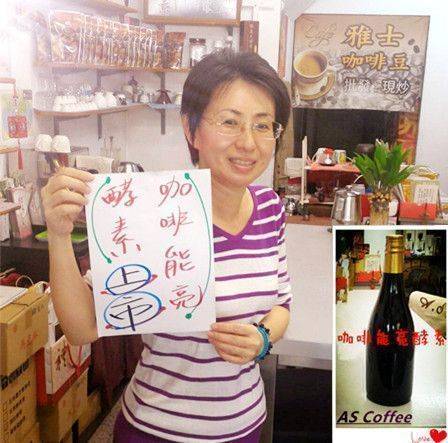 Cafe
雅士
咖啡豆
批發 現炒
咖啡能亮
酵素上市
咖啡能 酵素
AS Coffee
Love